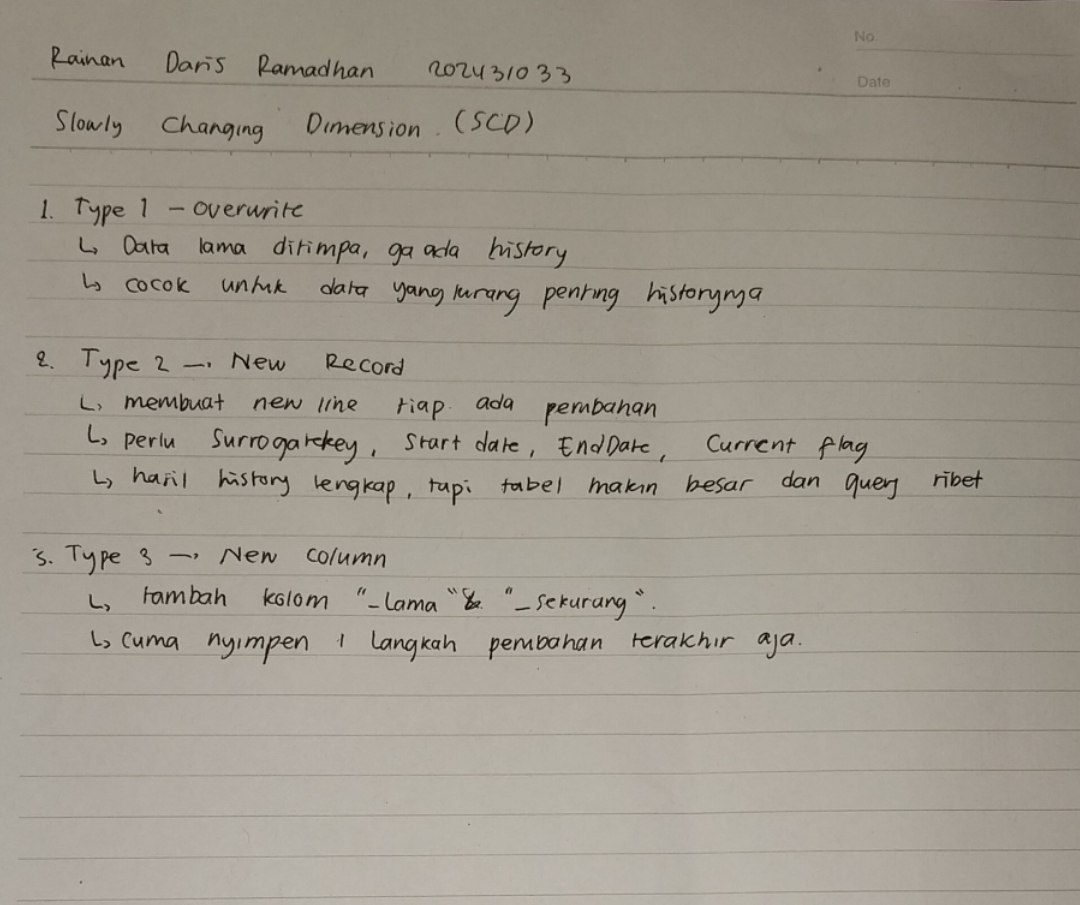 No.
Rainan Daris Ramadhan 202431033
Date
Slowly Changing Dimension. (SCD)
1. Type 1 - overwrite
↳ Data lama ditimpa, ga ada history
↳ cocok untuk data yang kurang penting historynya
2. Type 2 → New Record
↳ membuat new line tiap. ada perubahan
↳ perlu Surrogatekey, Start date, EndDate, Current flag
↳ hasil history lengkap, tapi tabel makin besar dan query ribet
3. Type 3 → New column
↳ tambah kolom "_lama" & "_sekarang".
↳ Cuma nyimpen 1 langkah perubahan terakhir aja.